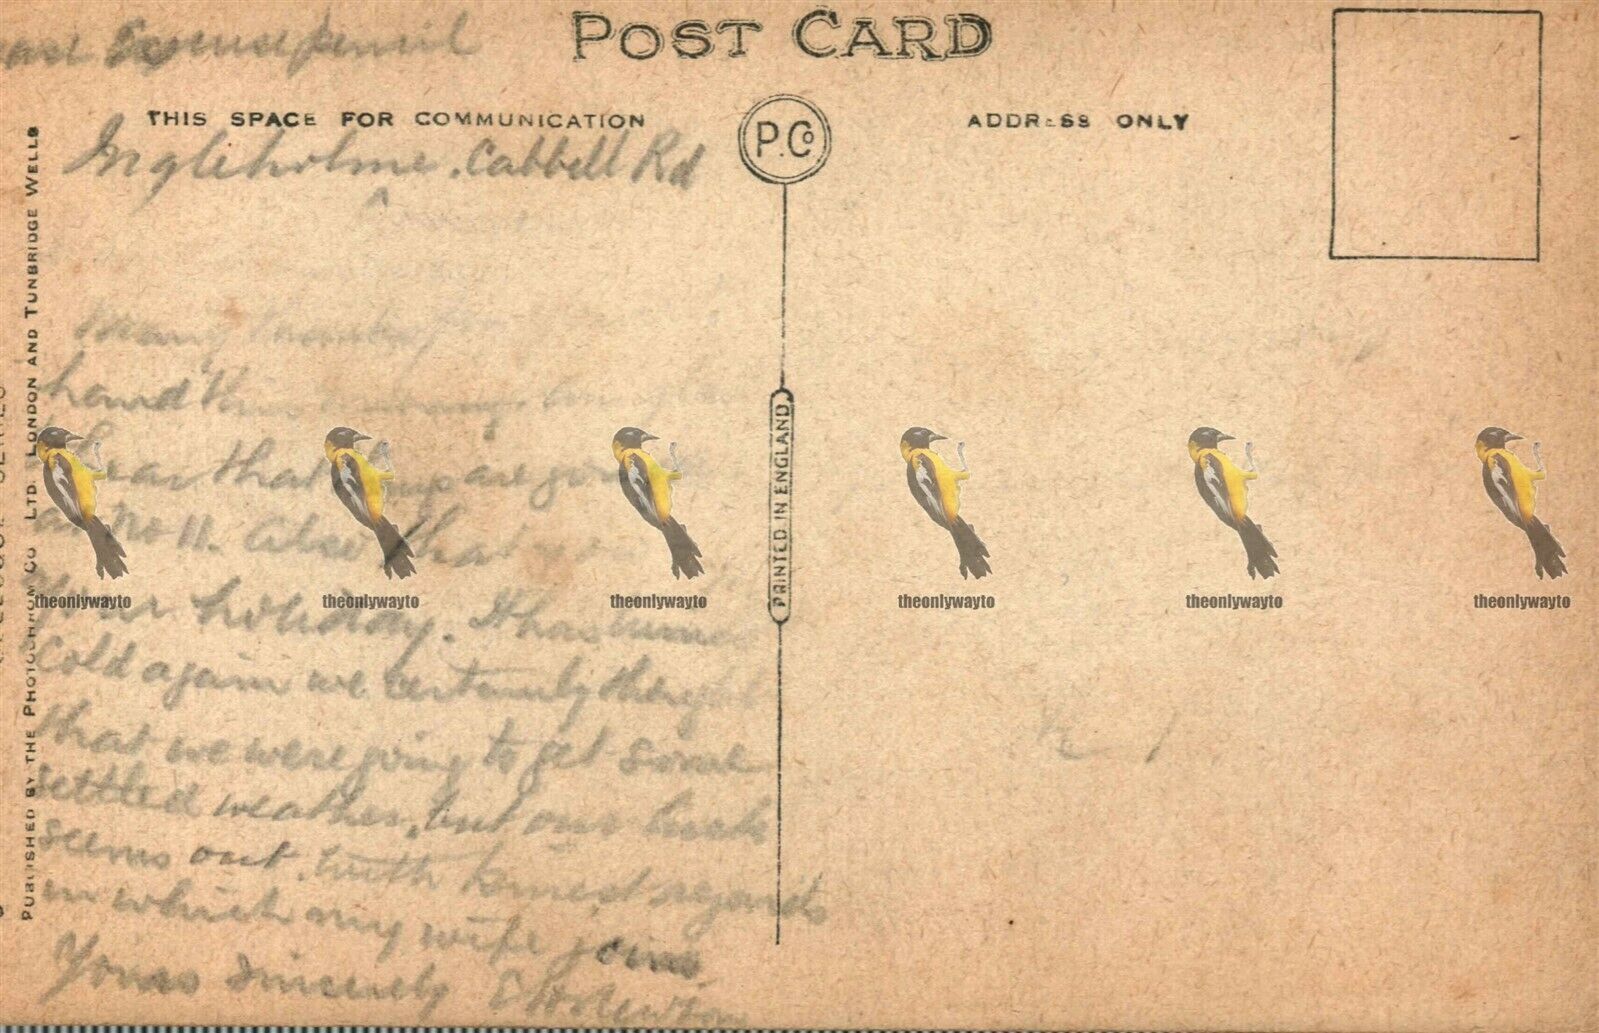 Excuse pencil
POST CARD
THIS SPACE FOR COMMUNICATION
ADDRESS ONLY
P. Co
Ingleholme. Cabbell Rd
Many thanks for
hand this
hear that are
at No 11. Also that you
Your holiday. It has turned
Cold again we certainly thought
that we were going to get some
settled weather, but our luck
seems out. With kindest regards
in which my wife joins.
Yours sincerely Newton
PRINTED IN ENGLAND
PUBLISHED BY THE PHOTOCHROM CO. LTD. LONDON AND TUNBRIDGE WELLS
theonlywayto
theonlywayto
theonlywayto
theonlywayto
theonlywayto
theonlywayto